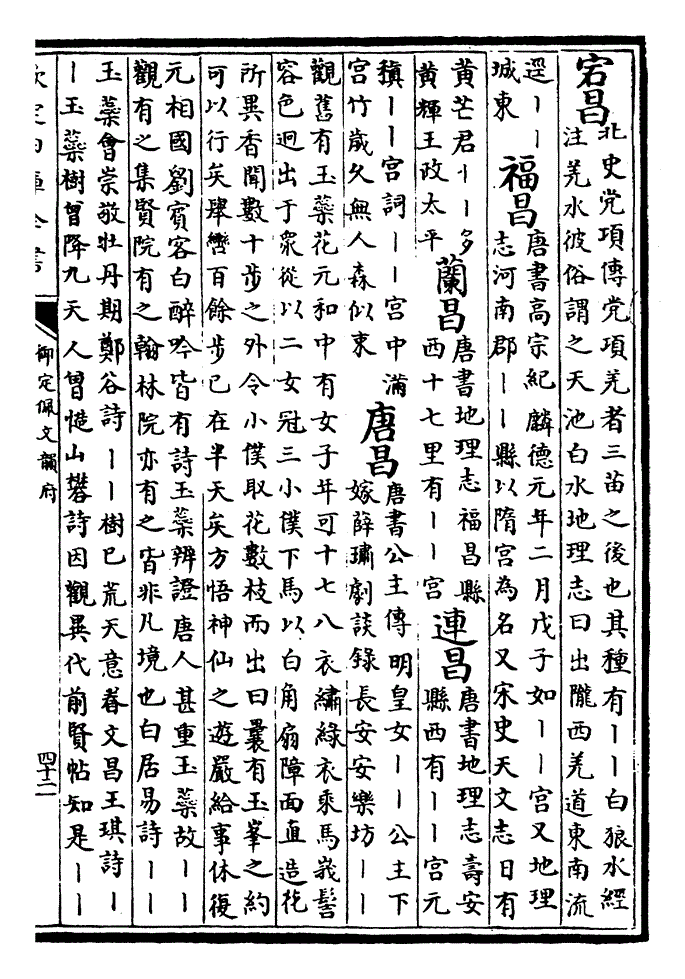 宕昌北史党項傳党項羌者三苗之後也其種有丨丨白狼水經
注羌水彼俗謂之天池白水地理志曰出隴西羌道東南流
逕丨丨
城東
福昌唐書高宗紀麟德元年二月戊子如丨丨宮又地理
志河南郡丨丨縣以隋宮為名又宋史天文志日有
黄芒君丨丨多
黄輝王政太平
蘭昌唐書地理志福昌縣
西十七里有丨丨宮
連昌唐書地理志壽安
縣西有丨丨宮元
稹丨丨宮詞丨丨宮中滿
宮竹歲久無人森似束
唐昌唐書公主傳明皇女丨丨公主下
嫁薛璛劇談錄長安安樂坊丨丨
觀舊有玉蘂花元和中有女子年可十七八衣繡綠衣乘馬峩髻
容色迥出于衆從以二女冠三小僕下馬以白角扇障面直造花
所異香聞數十步之外令小僕取花數枝而出曰曩有玉峯之約
可以行矣舉轡百餘步已在半天矣方悟神仙之遊嚴給事休復
元相國劉賓客白醉吟皆有詩玉蘂辨證唐人甚重玉蘂故丨丨
觀有之集賢院有之翰林院亦有之皆非凡境也白居易詩丨丨
玉蘂會崇敬牡丹期鄭谷詩丨丨樹已荒天意眷文昌王琪詩丨
丨玉蘂樹曾降九天人曾慥山礬詩因觀異代前賢帖知是丨丨
欽定四庫全書
御定佩文韻府
四十二